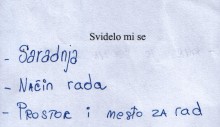 Svidelo mi se
- Saradnja
- Način rada
- PROSTOR i mesto ZA rad